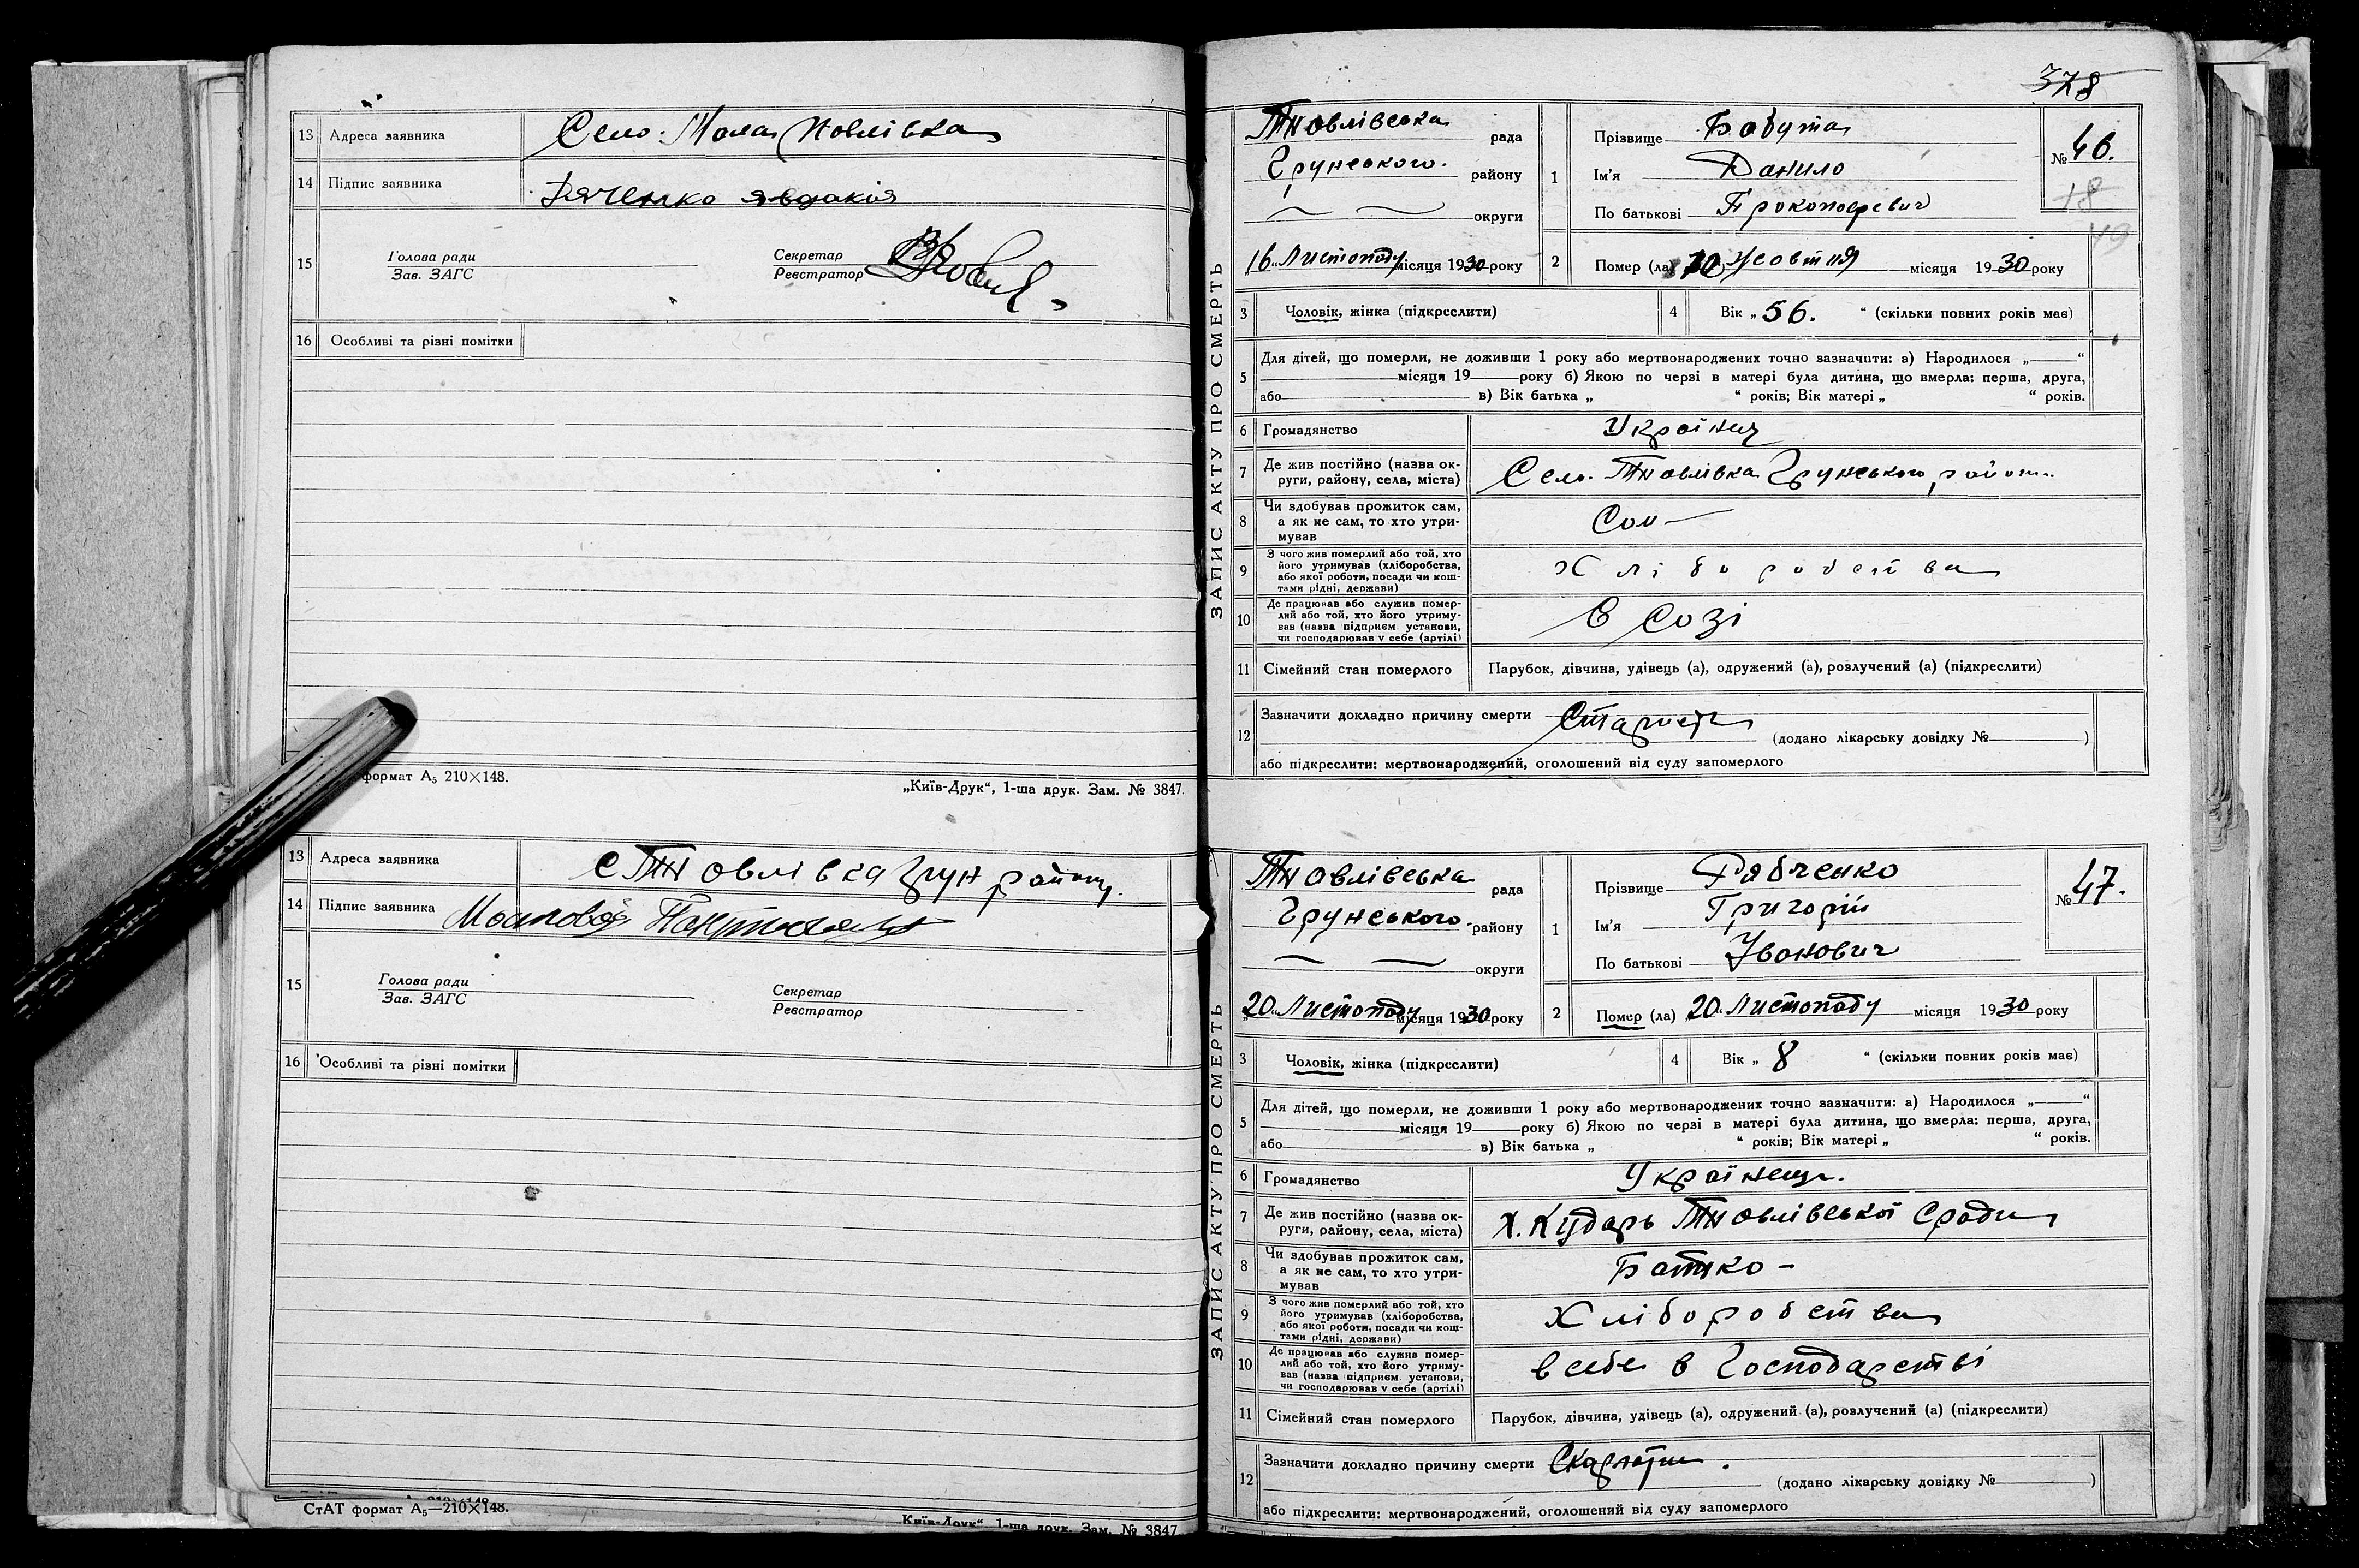 13 Адреса заявника Село. Мала Павлівка
14 Підпис заявника Дяченко явдакія
15 Голова ради
Зав. ЗАГС
Секретар
Реєстратор
16 Особливі та різні помітки
формат А5 210×148.
„Київ-Друк“, 1-ша друк. Зам. № 3847.
13 Адреса заявника
14 Підпис заявника
15 Голова ради
Зав. ЗАГС
Секретар
Реєстратор
16 Особливі та різні помітки
СтАТ формат А5—210×148.
„Київ-Друк“, 1-ша друк. Зам. № 3847
378
ЗАПИС АКТУ ПРО СМЕРТЬ
рада
Грунського. району
округи
16 Листопаду місяця 1930 року
1 Прізвище Бабута
Ім'я Данило
По батькові Прокопович
№ 46.
18
49
2 Помер (ла) Жовтня місяця 1930 року
3 Чоловік, жінка (підкреслити)
4 Вік „ 56. “ (скільки повних років має)
5 Для дітей, що померли, не доживши 1 року або мертвонароджених точно зазначити: а) Народилося „ “
місяця 19 року б) Якою по черзі в матері була дитина, що вмерла: перша, друга,
або в) Вік батька „ “ років; Вік матері „ “ років.
6 Громадянство Українец
7 Де жив постійно (назва ок-
руги, району, села, міста)
Село. Грунського район
8 Чи здобував прожиток сам,
а як не сам, то хто утри-
мував
Сам —
9 З чого жив померлий або той, хто
його утримував (хліборобства,
або якої роботи, посади чи кош-
тами рідні, держави)
Хліборобства
10 Де працював або служив помер-
лий або той, хто його утриму-
вав (назва підприєм. установи,
чи господарював у себе (артілі)
В Созі
11 Сімейний стан померлого Парубок, дівчина, удівець (а), одружений (а), розлучений (а) (підкреслити)
12 Зазначити докладно причину смерти
(додано лікарську довідку № )
або підкреслити: мертвонароджений, оголошений від суду запомерлого
ЗАПИС АКТУ ПРО СМЕРТЬ
рада
Грунського. району
округи
20 Листопаду місяця 1930 року
1 Прізвище Рябченко
Ім'я Григорій
По батькові Іванович
№ 47.
2 Помер (ла) 20 Листопаду місяця 1930 року
3 Чоловік, жінка (підкреслити)
4 Вік „ 8 “ (скільки повних років має)
5 Для дітей, що померли, не доживши 1 року або мертвонароджених точно зазначити: а) Народилося „ “
місяця 19 року б) Якою по черзі в матері була дитина, що вмерла: перша, друга,
або в) Вік батька „ “ років; Вік матері „ “ років.
6 Громадянство Українець.
7 Де жив постійно (назва ок-
руги, району, села, міста)
Х. Кударь Сради
8 Чи здобував прожиток сам,
а як не сам, то хто утри-
мував
Батько —
9 З чого жив померлий або той, хто
його утримував (хліборобства,
або якої роботи, посади чи кош-
тами рідні, держави)
Хліборобства
10 Де працював або служив помер-
лий або той, хто його утриму-
вав (назва підприєм. установи,
чи господарював у себе (артілі)
в себе в Господарстві
11 Сімейний стан померлого Парубок, дівчина, удівець (а), одружений (а), розлучений (а) (підкреслити)
12 Зазначити докладно причину смерти Скарлатина.
(додано лікарську довідку № )
або підкреслити: мертвонароджений, оголошений від суду запомерлого